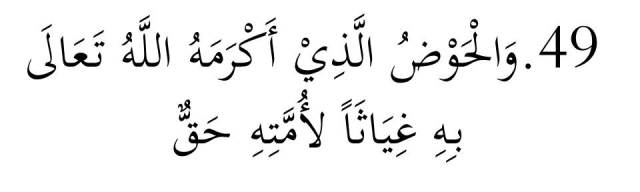 49. وَالْحَوْضُ الَّذِيْ أَكْرَمَهُ اللَّهُ تَعَالَى
بِهِ غِيَاثَاً لأُمَّتِهِ حَقٌّ